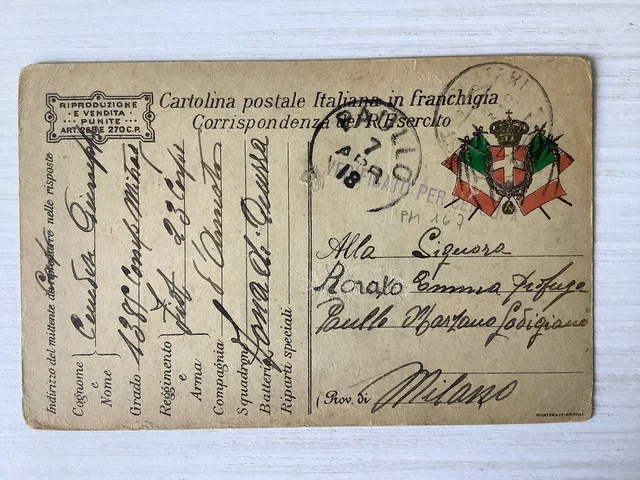 RIPRODUZIONE
E VENDITA
PUNITE
ART. 268 E 270 C.P.
Cartolina postale Italiana in franchigia
Corrispondenza del R. Esercito
PAULLO
7
APR
18
VERIFICATO PER CENSURA
PM 167
Alla Signora
Rorato Emma Profuga
Paullo Marzano Lodigiano
(Prov. di Milano
Indirizzo del mittente da riprodurre nelle risposte
Cognome
e
Nome
Giuseppe
Grado
138ª Comp Mitr
Reggimento
e
Arma
23 Corpo
Compagnia
d'Armata
Squadrone
Batteria
Zona di Guerra
Riparti speciali